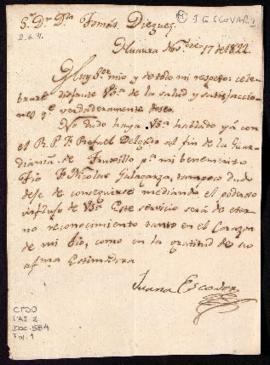 Sr. Dr. Dn. Tomas Dieguez.
2.6.4.
J ESCOVAR
Huaura Nov.bre 17 de 1822
Muy Sor. mio y de todo mi respeto: cele-
braré disfrute Vd. de la salud y satisfaccio-
nes qe. verdaderamente deseo.
No dudo haya Vd. hablado yá con
el R. P. F. Rafael Delgado al fin de la Guar-
diania de Truxillo pa. mi benemerito
Tio F. Nicolas tampoco dudo
dese de conseguirse mediando el poderoso
influxo de Vd. Este servicio será de eter-
no reconocimiento tanto en el Corazon
de mi Tio, como en la gratitud de su
afma. Estimadora
Juana Escobar
CDO
LAS 2
DOC-584
Fol. 1